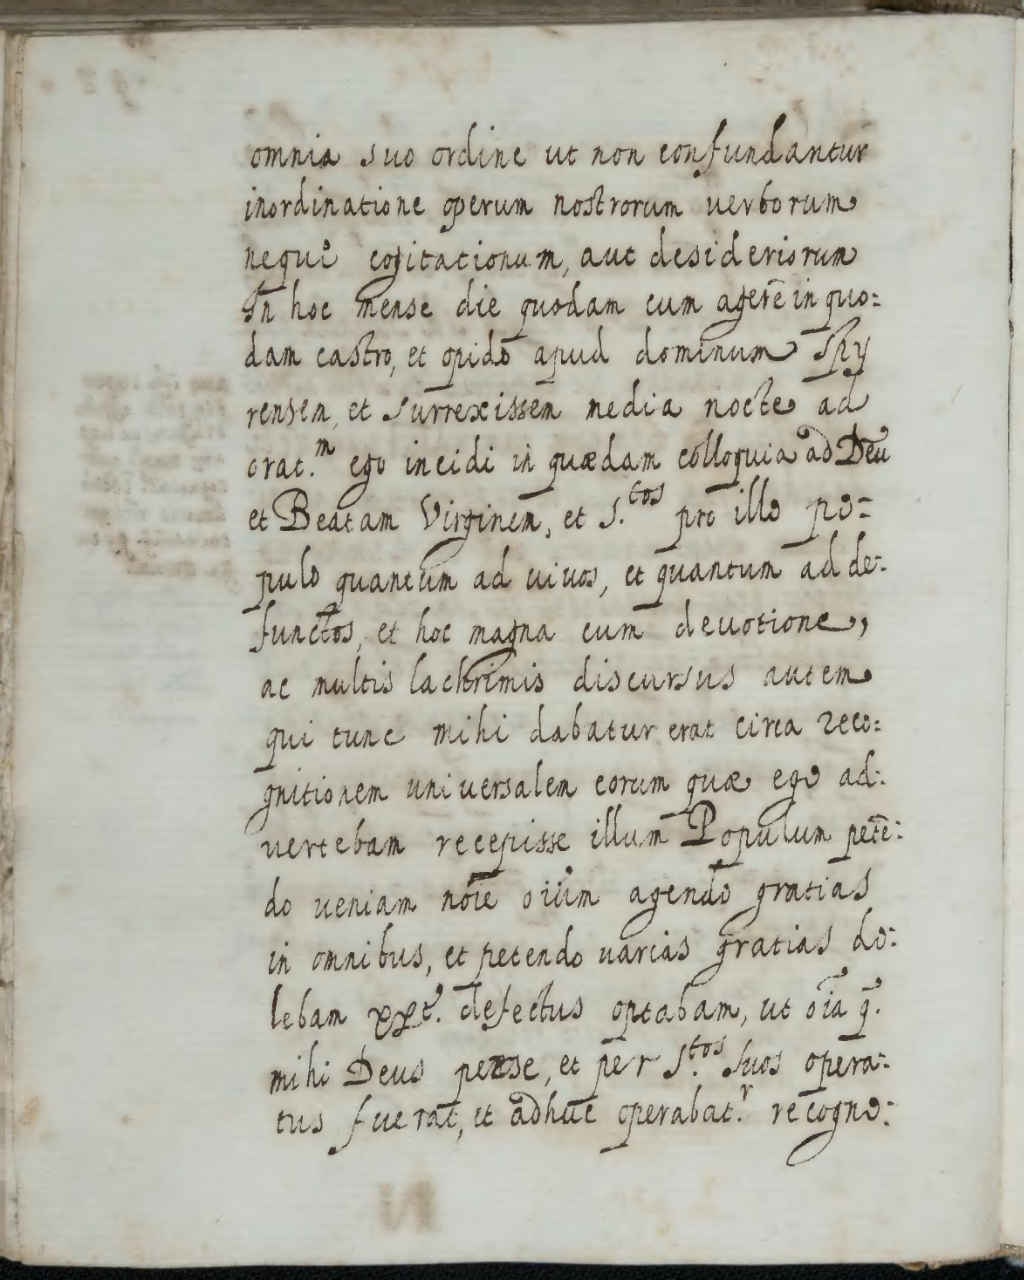 omnia suo ordine ut non confundantur
inordinatione operum nostrorum uerborum
nequè cogitationum, aut desideriorum
In hoc mense die quodam cum agerẽ in quo=
dam castro, et opido apud dominum Spy
rensem, et surrexissem media nocte ad
orat.m ego incidi in quædam colloquia ad Deũ
et Beatam Virginem, et S.tos pro illo po=
pulo quantum ad uiuos, et quantum ad de=
functos, et hoc magna cum deuotione,
ac multis lachrimis discursus autem
qui tunc mihi dabatur erat circa reco=
gnitionem uniuersalem eorum quæ ego ad=
uertebam recepisse illum Populum petẽ=
do ueniam nõie oiũm agendo gratias
in omnibus, et petendo uarias gratias do=
lebam defectus optabam, ut õia q̃.
mihi Deus per se, et per S.tos suos opera=
tus fuerat, et adhuc operabat.r recogno=